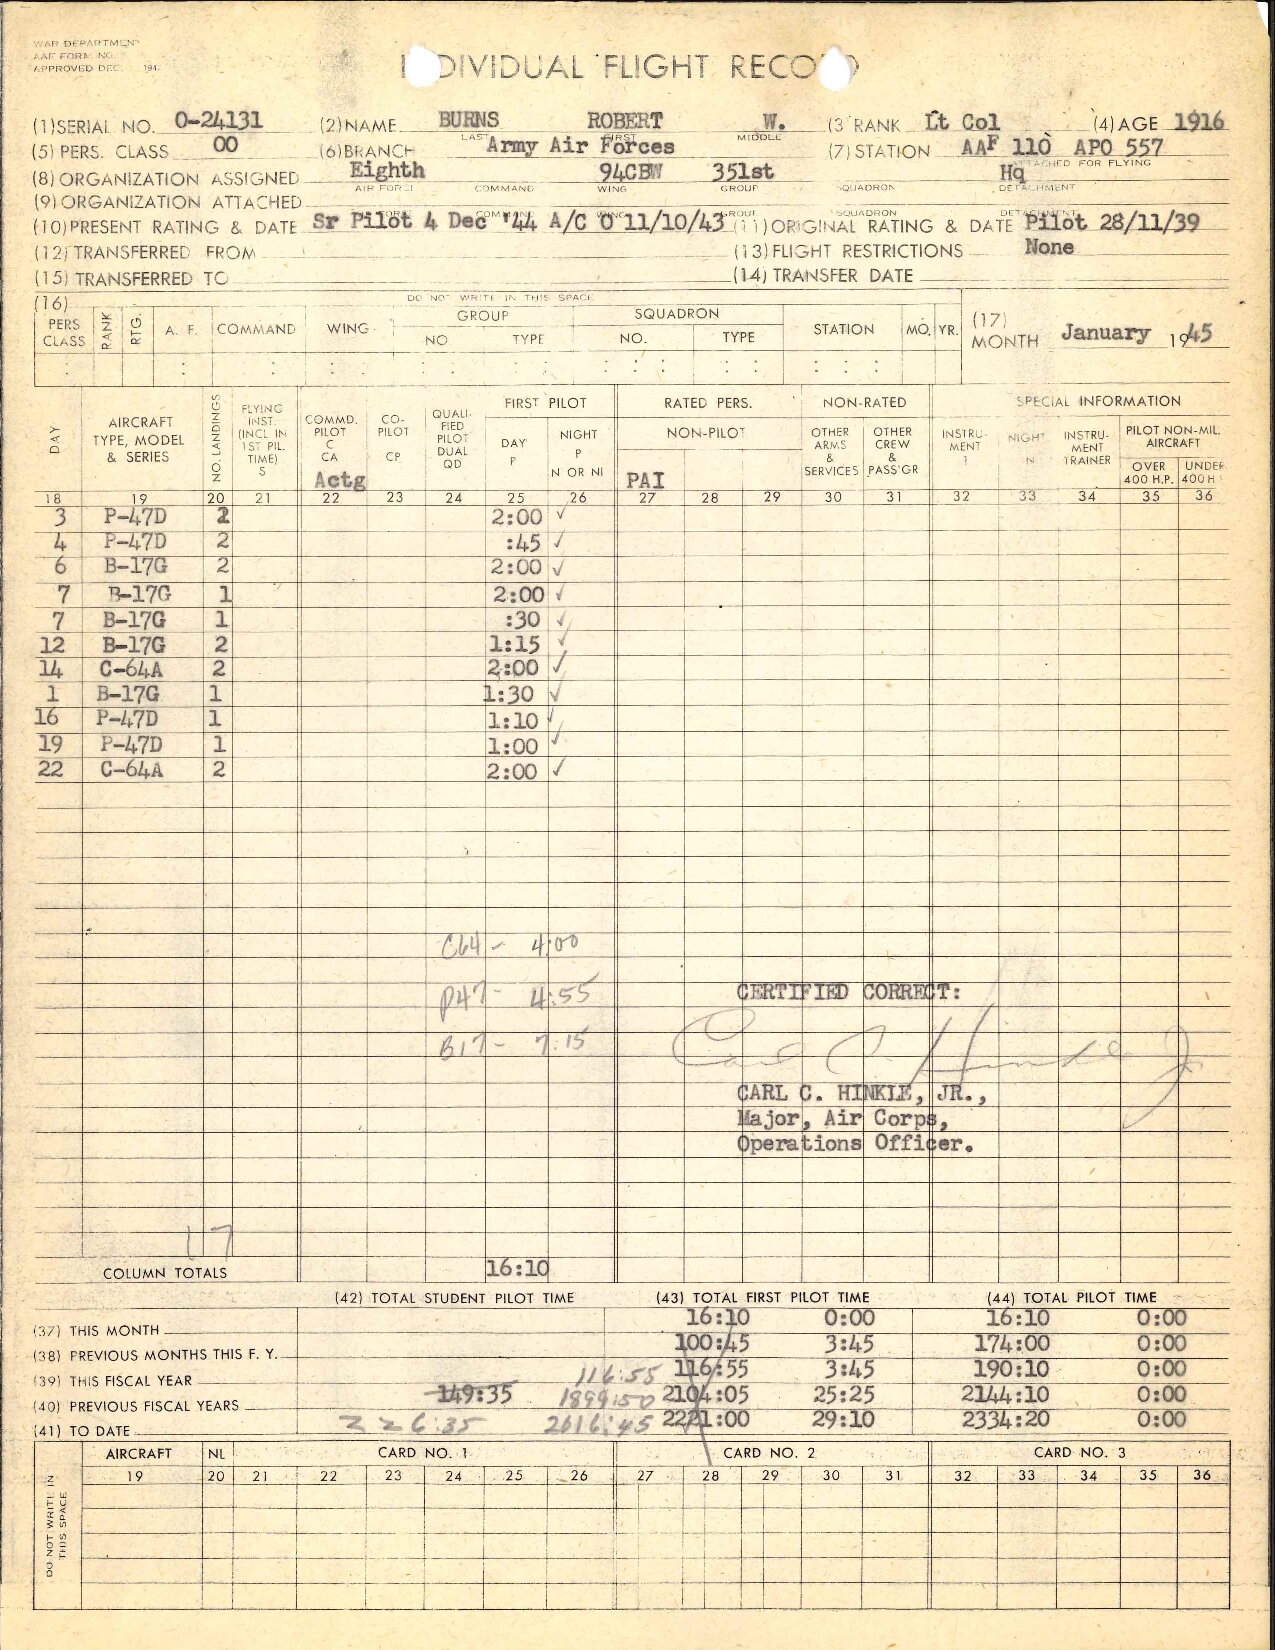 WAR DEPARTMENT
AAF FORM NO.
APPROVED DEC. 194
INDIVIDUAL FLIGHT RECORD
(1) SERIAL NO. O-24131 (2) NAME BURNS ROBERT W. (3 RANK Lt Col (4) AGE 1916
LAST FIRST MIDDLE
(5) PERS. CLASS 00 (6) BRANCH Army Air Forces (7) STATION AAF 110 APO 557
(8) ORGANIZATION ASSIGNED Eighth 94CBW 351st Hq
ATTACHED FOR FLYING
AIR FORCE COMMAND WING GROUP SQUADRON DETACHMENT
(9) ORGANIZATION ATTACHED
COMMAND WING GROUP SQUADRON DETACHMENT
(10) PRESENT RATING & DATE Sr Pilot 4 Dec '44 A/C O 11/10/43 (11) ORIGINAL RATING & DATE Pilot 28/11/39
(12) TRANSFERRED FROM (13) FLIGHT RESTRICTIONS None
(15) TRANSFERRED TO (14) TRANSFER DATE
(16) DO NOT WRITE IN THIS SPACE
PERS CLASS RANK RTG. A. F. COMMAND WING GROUP NO TYPE SQUADRON NO. TYPE STATION MO. YR. (17) MONTH January 1945
DAY AIRCRAFT TYPE, MODEL & SERIES NO. LANDINGS FLYING INST. (INCL IN 1ST PIL. TIME) S COMMD. PILOT C CA Actg CO-PILOT CP QUALI-FIED PILOT DUAL QD FIRST PILOT DAY P NIGHT P N OR NI RATED PERS. NON-PILOT PAI NON-RATED OTHER ARMS & SERVICES OTHER CREW & PASS'GR SPECIAL INFORMATION INSTRU-MENT I NIGHT N INSTRU-MENT TRAINER PILOT NON-MIL. AIRCRAFT OVER 400 H.P. UNDER 400 H
18 19 20 21 22 23 24 25 26 27 28 29 30 31 32 33 34 35 36
3 P-47D 2 2:00 ✓
4 P-47D 2 :45 ✓
6 B-17G 2 2:00 ✓
7 B-17G 1 2:00 ✓
7 B-17G 1 :30 ✓
12 B-17G 2 1:15 ✓
14 C-64A 2 2:00 ✓
1 B-17G 1 1:30 ✓
16 P-47D 1 1:10 ✓
19 P-47D 1 1:00 ✓
22 C-64A 2 2:00 ✓
C64 - 4:00
P47 - 4:55
B17 - 7:15
CERTIFIED CORRECT:
Carl C. Hinkle Jr
CARL C. HINKLE, JR.,
Major, Air Corps,
Operations Officer.
17
COLUMN TOTALS 16:10
(42) TOTAL STUDENT PILOT TIME (43) TOTAL FIRST PILOT TIME (44) TOTAL PILOT TIME
(37) THIS MONTH 16:10 0:00 16:10 0:00
(38) PREVIOUS MONTHS THIS F. Y. 100:45 3:45 174:00 0:00
(39) THIS FISCAL YEAR 116:55 116:55 3:45 190:10 0:00
(40) PREVIOUS FISCAL YEARS 149:35 1899:50 2104:05 25:25 2144:10 0:00
(41) TO DATE 226:35 2616:45 2221:00 29:10 2334:20 0:00
AIRCRAFT NL CARD NO. 1 CARD NO. 2 CARD NO. 3
19 20 21 22 23 24 25 26 27 28 29 30 31 32 33 34 35 36
DO NOT WRITE IN
THIS SPACE